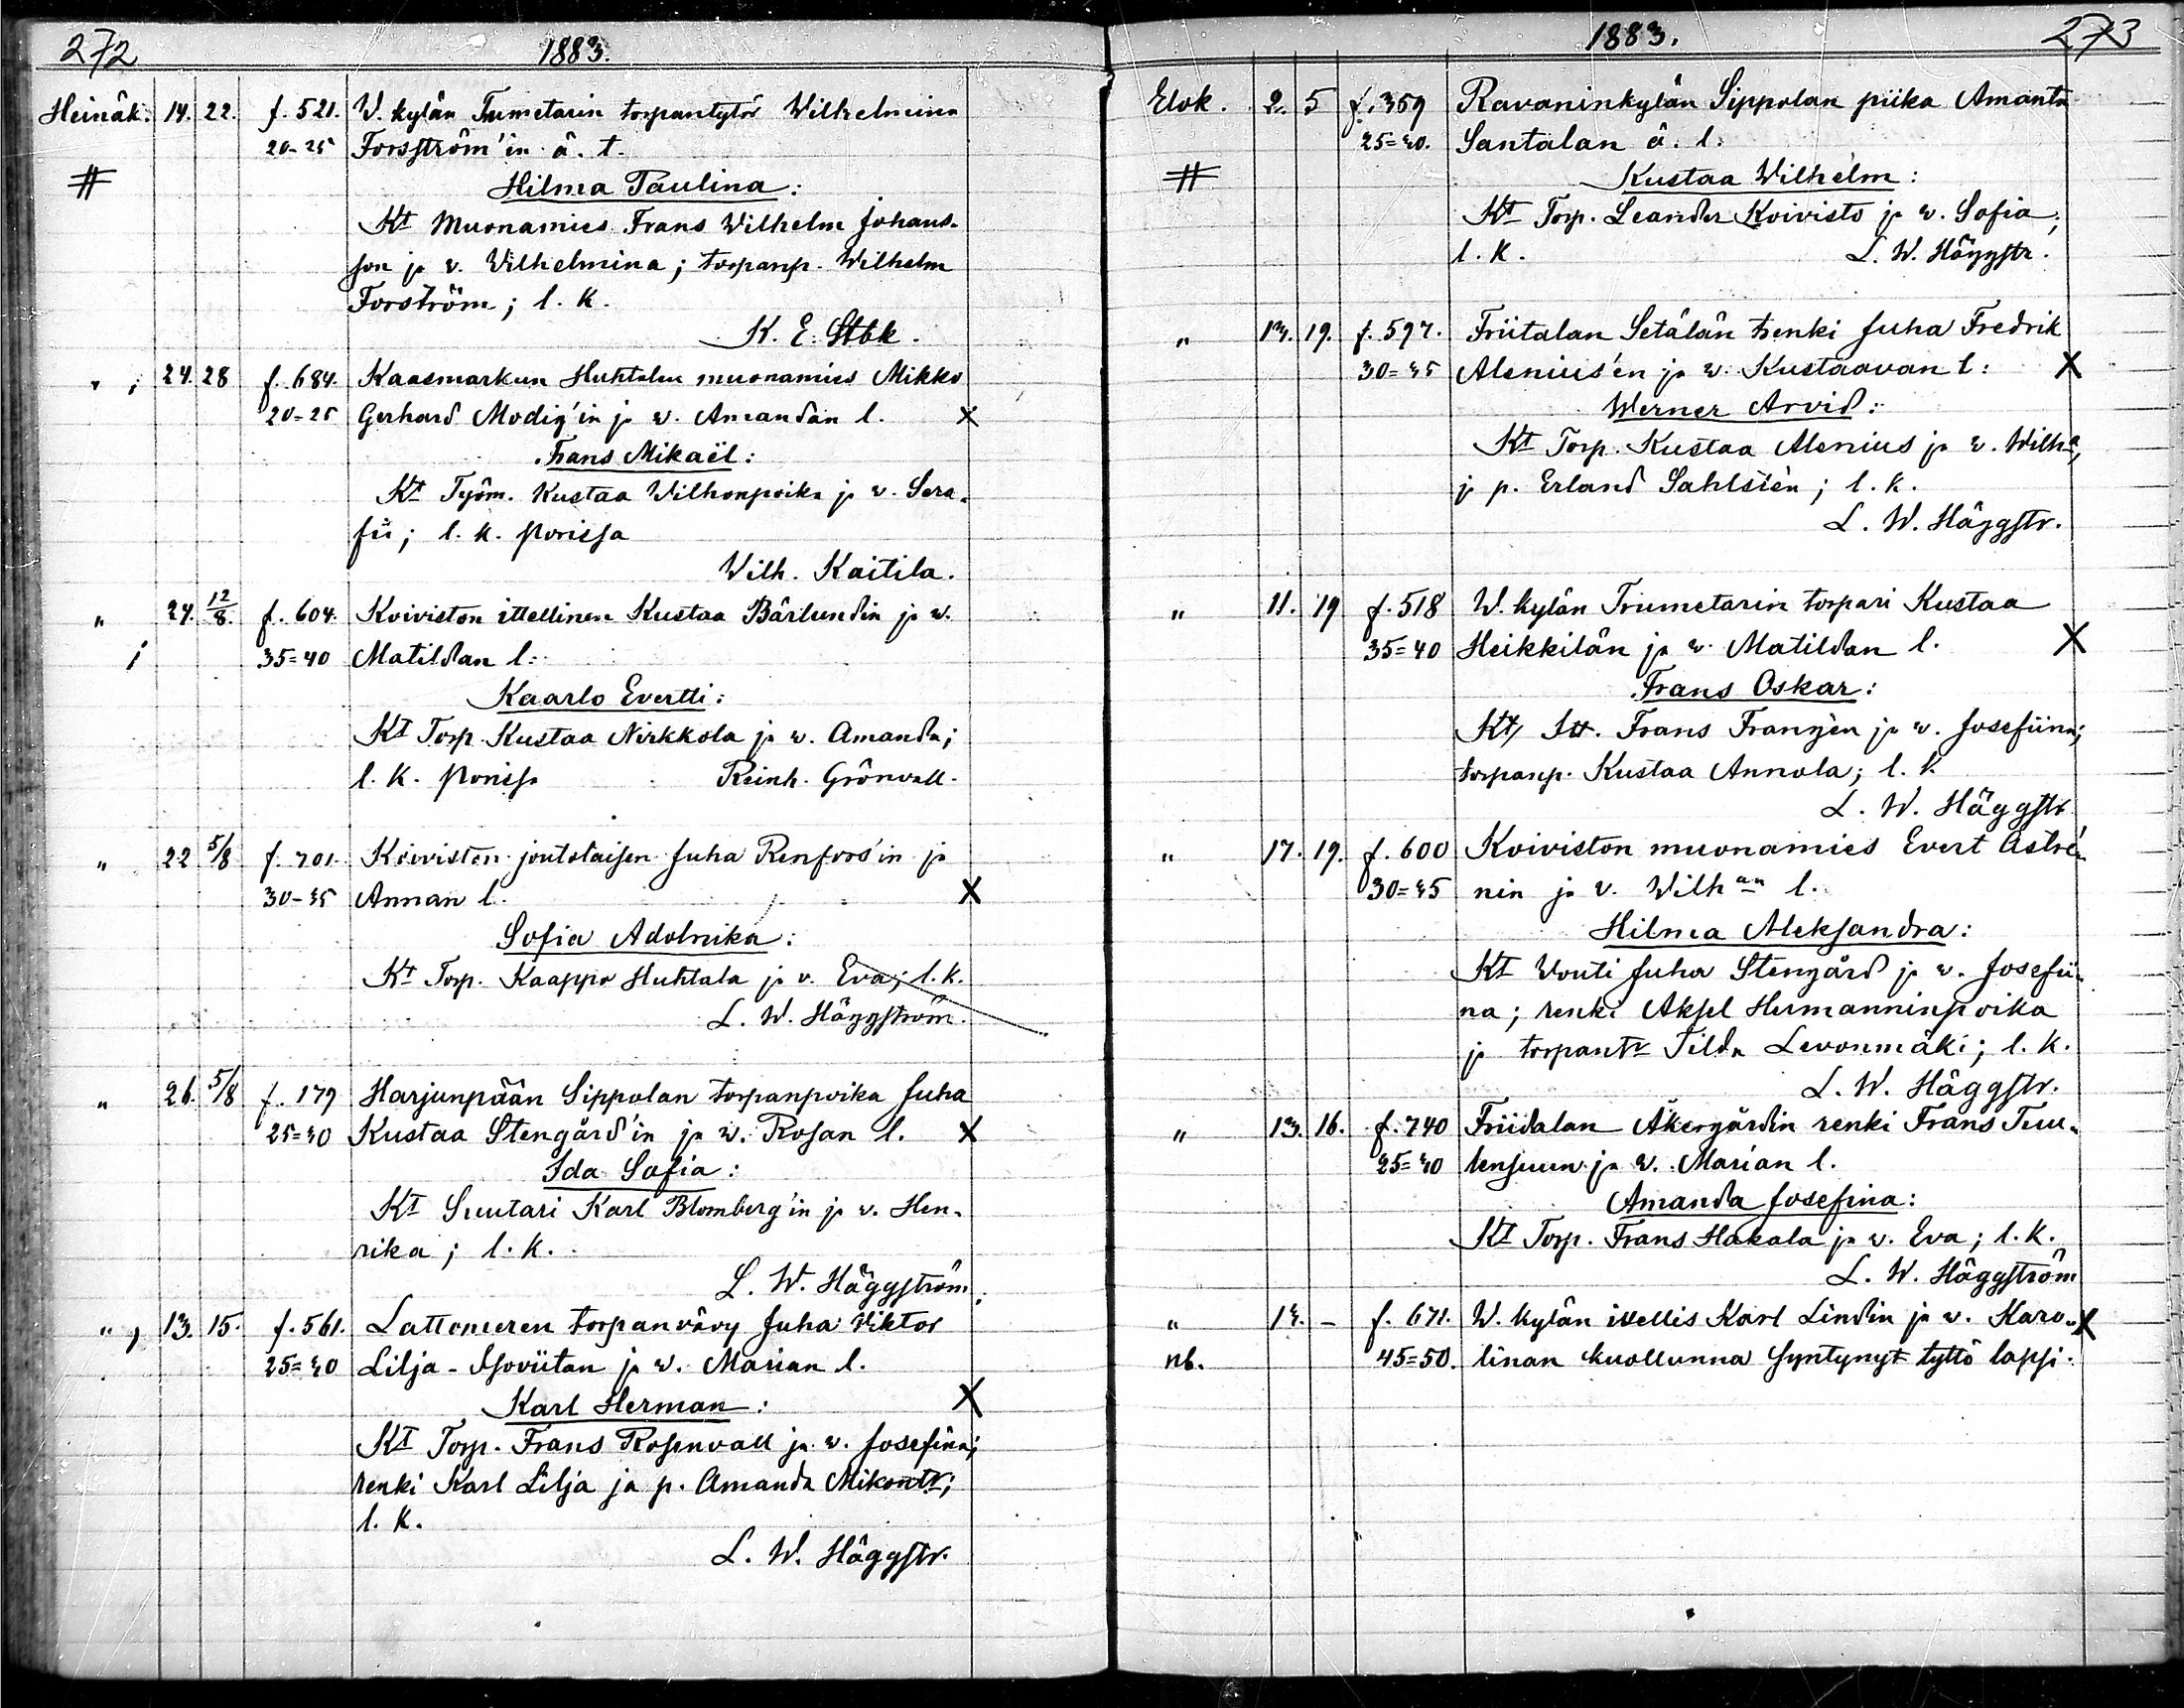 272
1883.
Heinäk. 14. 22. f. 521. W. kylän Trumetarin torpantytär Wilhelmina
20-25 Forsström'in ä. t.
Hilma Paulina:
Kt Muonamies Frans Wilhelm Johans-
son ja v. Wilhelmina; torpanp. Wilhelm
Forström; l. k.
K. E. Stbk.
" 24. 28 f. 684. Kaasmarkun Huhtalan muonamies Mikko
20-25 Gerhard Modig'in ja w. Amandan l. X
Frans Mikaël:
Kt Työm. Kustaa Wilhonpoika ja w. Sera-
fii; l. k. Porissa
Wilh. Kaitila.
" 24. 12/8. f. 604. Koiviston ittellinen Kustaa Bärlundin ja w.
35=40 Matildan l:
Kaarlo Evertti:
Kt Torp. Kustaa Nirkkola ja w. Amanda;
l. k. Porissa Reinh. Grönvall.
" 22 5/8 f. 701. Koiviston joutolaisen Juha Renfors'in ja
30-35 Annan l. X
Sofia Adolrika:
Kt Torp. Kaappo Huhtala ja v. Eva; l. k.
L. W. Häggström.
" 26. 5/8 f. 179 Harjunpään Sippolan torpanpoika Juha
25=30 Kustaa Stengård'in ja w. Rosan l. X
Ida Sofia:
Kt Suutari Karl Blomberg'in ja v. Hen-
rika; l. k.
L. W. Häggström.
" 13. 15. f. 561. Lattomeren torpanvävy Juha Viktor
25=30 Lilja-Isoviitan ja w. Marian l.
Karl Herman: X
Kt Torp. Frans Rosenvall ja w. Josefina;
renki Karl Lilja ja p. Amanda Mikontr;
l. k.
L. W. Häggstr.
1883.
273
Elok. 2. 5 f. 359 Ravaninkylän Sippolan piika Amanta
25=30. Santalan ä. l:
Kustaa Wilhelm:
Kt Torp. Leander Koivisto ja w. Sofia;
l. k. L. W. Häggstr.
" 19. f. 597. Friitalan Setälän renki Juha Fredrik
30=35 Alenius'en ja w. Kustaavan l: X
Werner Arvid:
Kt Torp. Kustaa Alenius ja w. Wilha,
j p. Erland Sahlstén; l. k.
L. W. Häggstr.
" 11. 19 f. 518 W. kylän Trumetarin torpari Kustaa
35=40 Heikkilän ja w. Matildan l. X
Frans Oskar:
Kt, Itt. Frans Franzén ja w. Josefiina;
torpanp. Kustaa Annola; l. k.
L. W. Häggstr
" 17. 19. f. 600 Koiviston muonamies Evert Astré-
30=35 nin ja v. Wilhan l.
Hilma Aleksandra:
Kt Vouti Juha Stengård ja w. Josefii-
na; renki Aksel Hermanninpoika
ja torpantr Tilda Levonmäki; l. k.
L. W. Häggstr.
" 13. 16. f. 740 Friidalan Åkergårdin renki Frans Tuu-
25=30 lensuun ja w. Marian l.
Amanda Josefina:
Kt Torp. Frans Hakala ja w. Eva; l. k.
L. W. Häggström
" - f. 671. W. kylän itellis Karl Lindin ja w. Karo- X
nb. 45=50. linan kuollunna syntynyt tyttö lapsi.